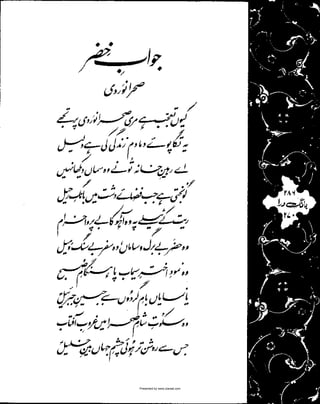 جوابِ خضر
صحرا نوردی
کیوں تعجب ہے مری صحرا نوردی پر تجھے
یہ تگاپوئے دمادم زندگی کی ہے دلیل
اے رہینِ خانہ تو نے وہ سماں دیکھا نہیں
گونجتی ہے جب فضائے دشت میں بانگِ رحیل
ریت کے ٹیلے پہ وہ آہو کا بے پروا خرام
وہ حضر بے برگ و ساماں وہ سفر بے سنگ و میل
وہ نمودِ اخترِ سیماب پا ہنگامِ صبح
یا نمایاں بامِ گردوں سے جبینِ جبرئیل
وہ سکوتِ شامِ صحرا میں غروبِ آفتاب
جس سے روشن تر ہوئی چشمِ جہاں بینِ خلیل
بانگ درا